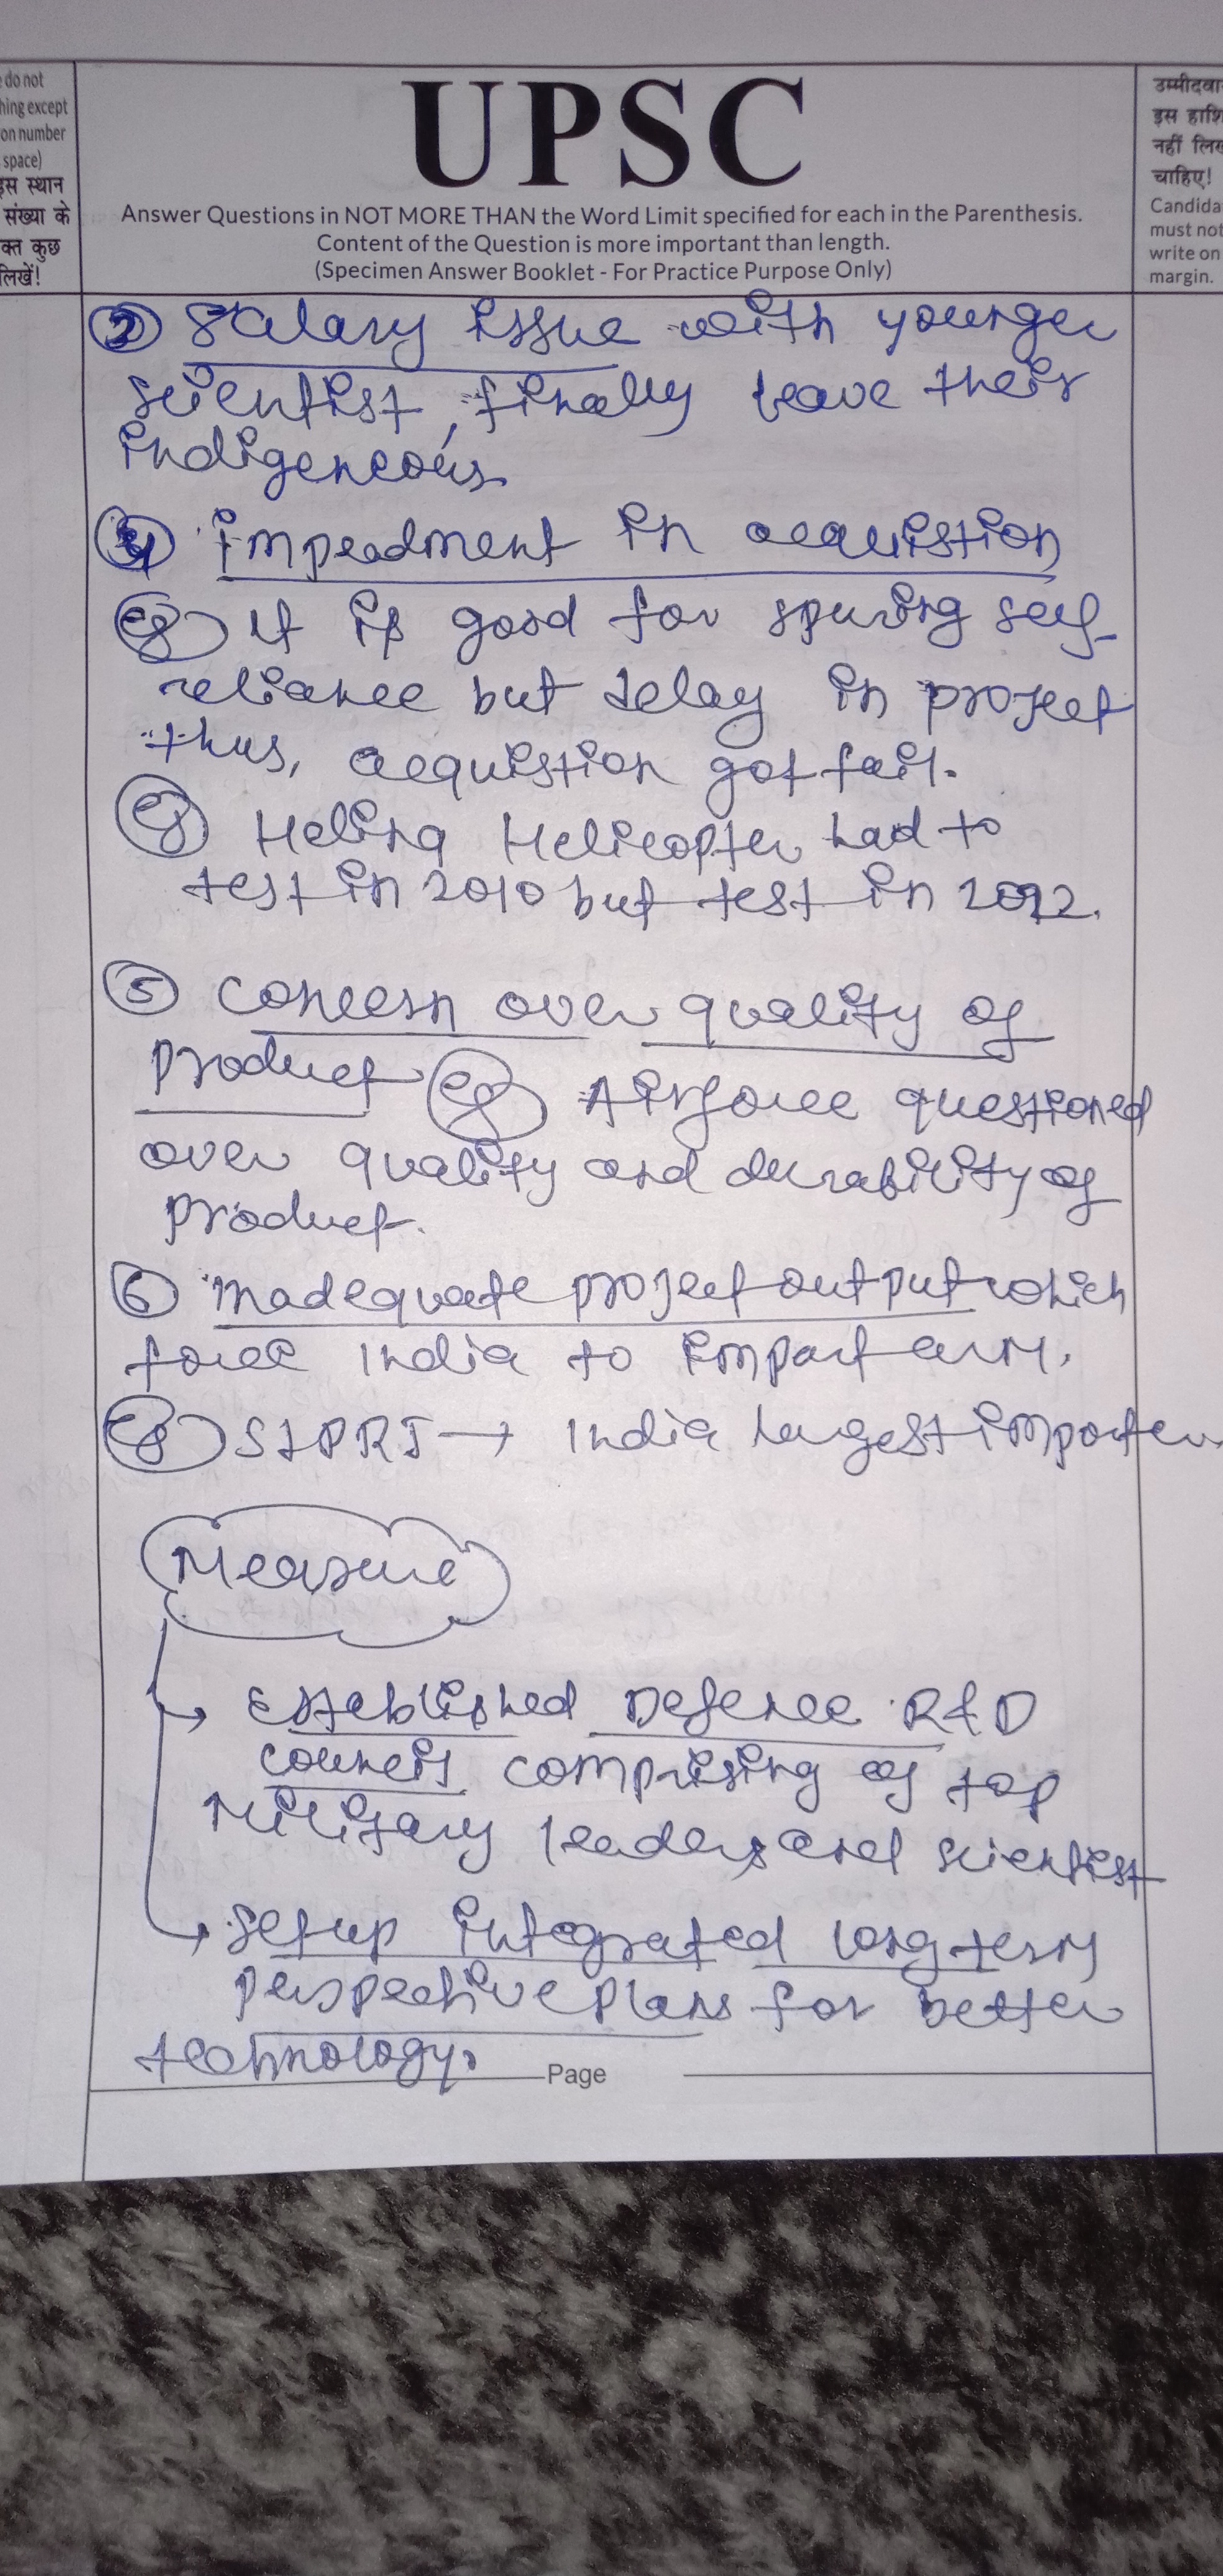 do not
hing except
on number
space)
इस स्थान
संख्या के
क्त कुछ
लिखें!
UPSC
Answer Questions in NOT MORE THAN the Word Limit specified for each in the Parenthesis.
Content of the Question is more important than length.
(Specimen Answer Booklet - For Practice Purpose Only)
उम्मीदवा
इस हाशि
नहीं लिख
चाहिए!
Candida
must not
write on
margin.
③ Salary issue with younger
scientist, finally leave their
indigeneous
④ impeadment in acquistion
eg It is good for spuring self-
reliance but delay in project
thus, acquistion got fail.
eg Helina Helicopter had to
test in 2010 but test in 2022.
⑤ concern over quality of
product eg Airforce questioned
over quality and durability of
product.
⑥ inadequate project output which
force India to import arm.
eg SIPRI → India largest importer
Measure
↳ Established Defence R&D
council comprising of top
military leaders and scientist
↳ setup integrated long term
perspective plans for better
technology.
Page